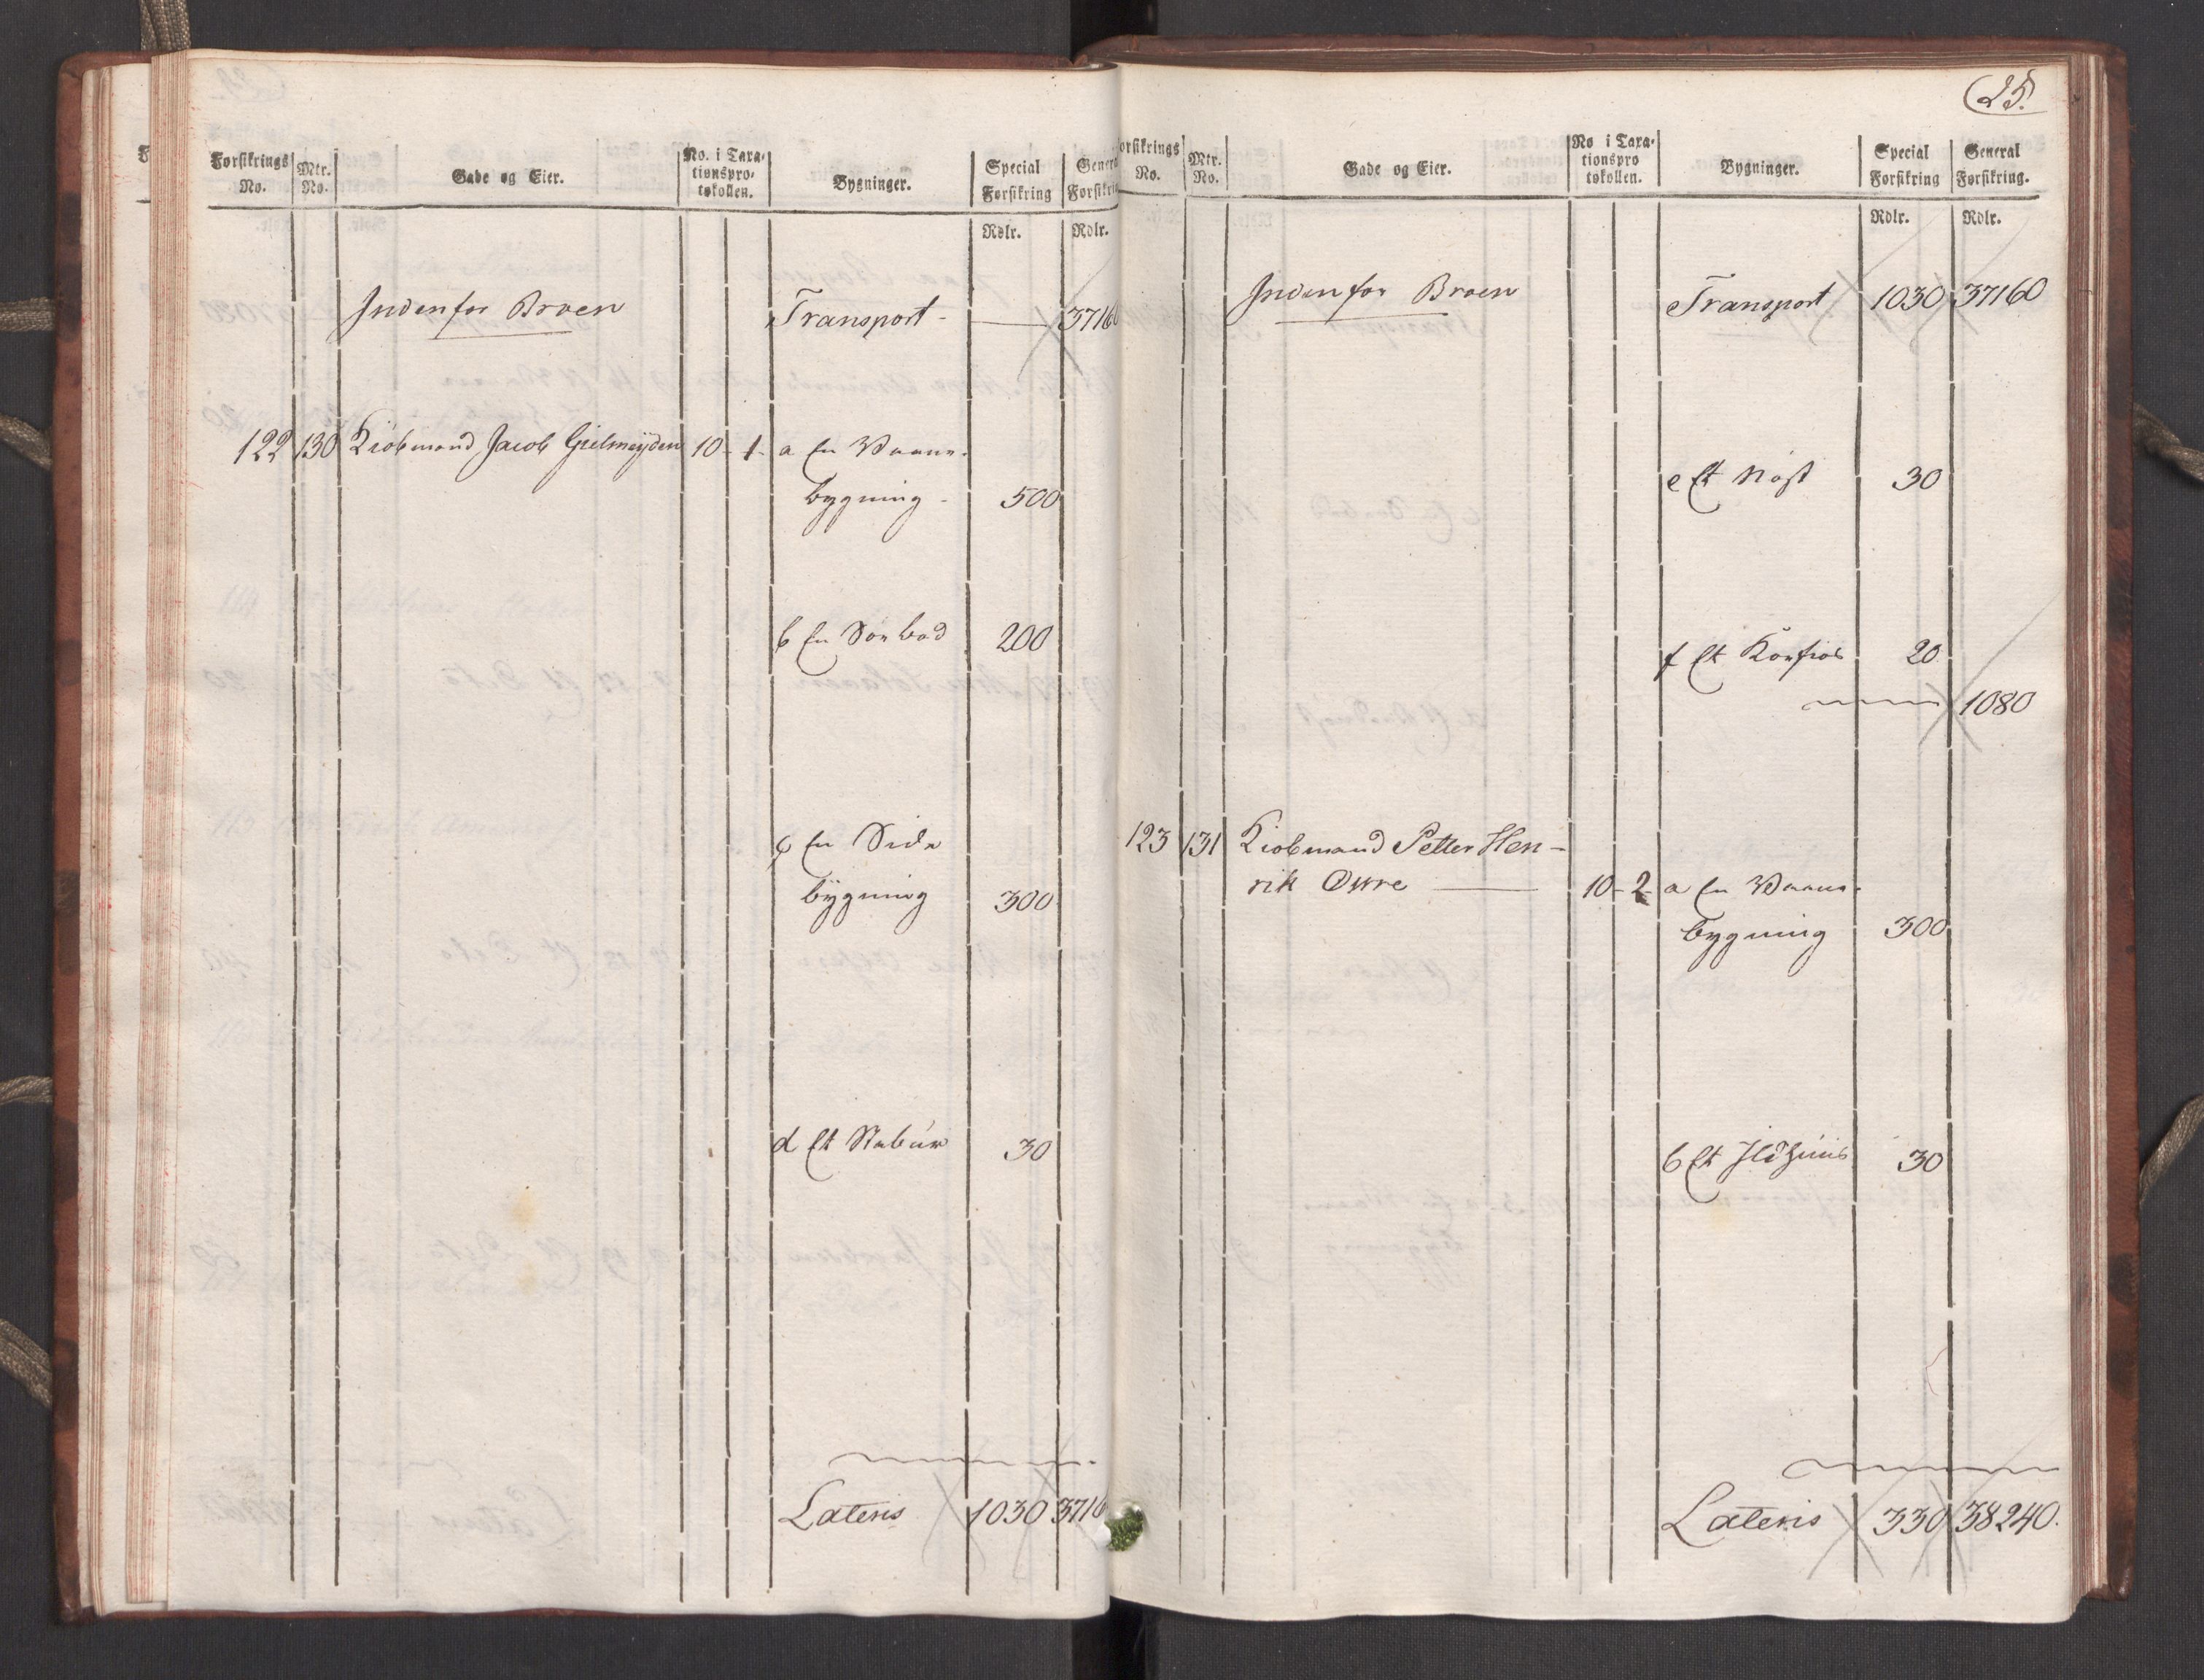 Forsikrings No.
Mtr. No.
Gade og Eier.
No. i Taxationsprotokollen.
Bygninger.
Special Forsikring
Rdlr.
Rdlr.
Indenfor Broen Transport - 3716
122 130 Kiöbmand Jacob Gjelmeÿden 10 - 1 - a En Vaane-
bygning - 500
b En Söe bod 200
c En Side
bÿgning 300
d Et Stabúr 30
Lateris 1030 3716
25.
orsikrings No.
Mtr. No.
Gade og Eier.
No i Taxationsprotokollen.
Bygninger.
Special Forsikring
General Forsikring.
Rdlr.
Rdlr.
Indenfor Broen Transport 1030 37160
e Et Nöst 30
f Et 20
1080
123 131 Kiobmand Petter Hen-
rik Owre 10 - 2 - a En Vaane-
bygning 300
b Et Ildhuus 30
Lateris 330 38240.